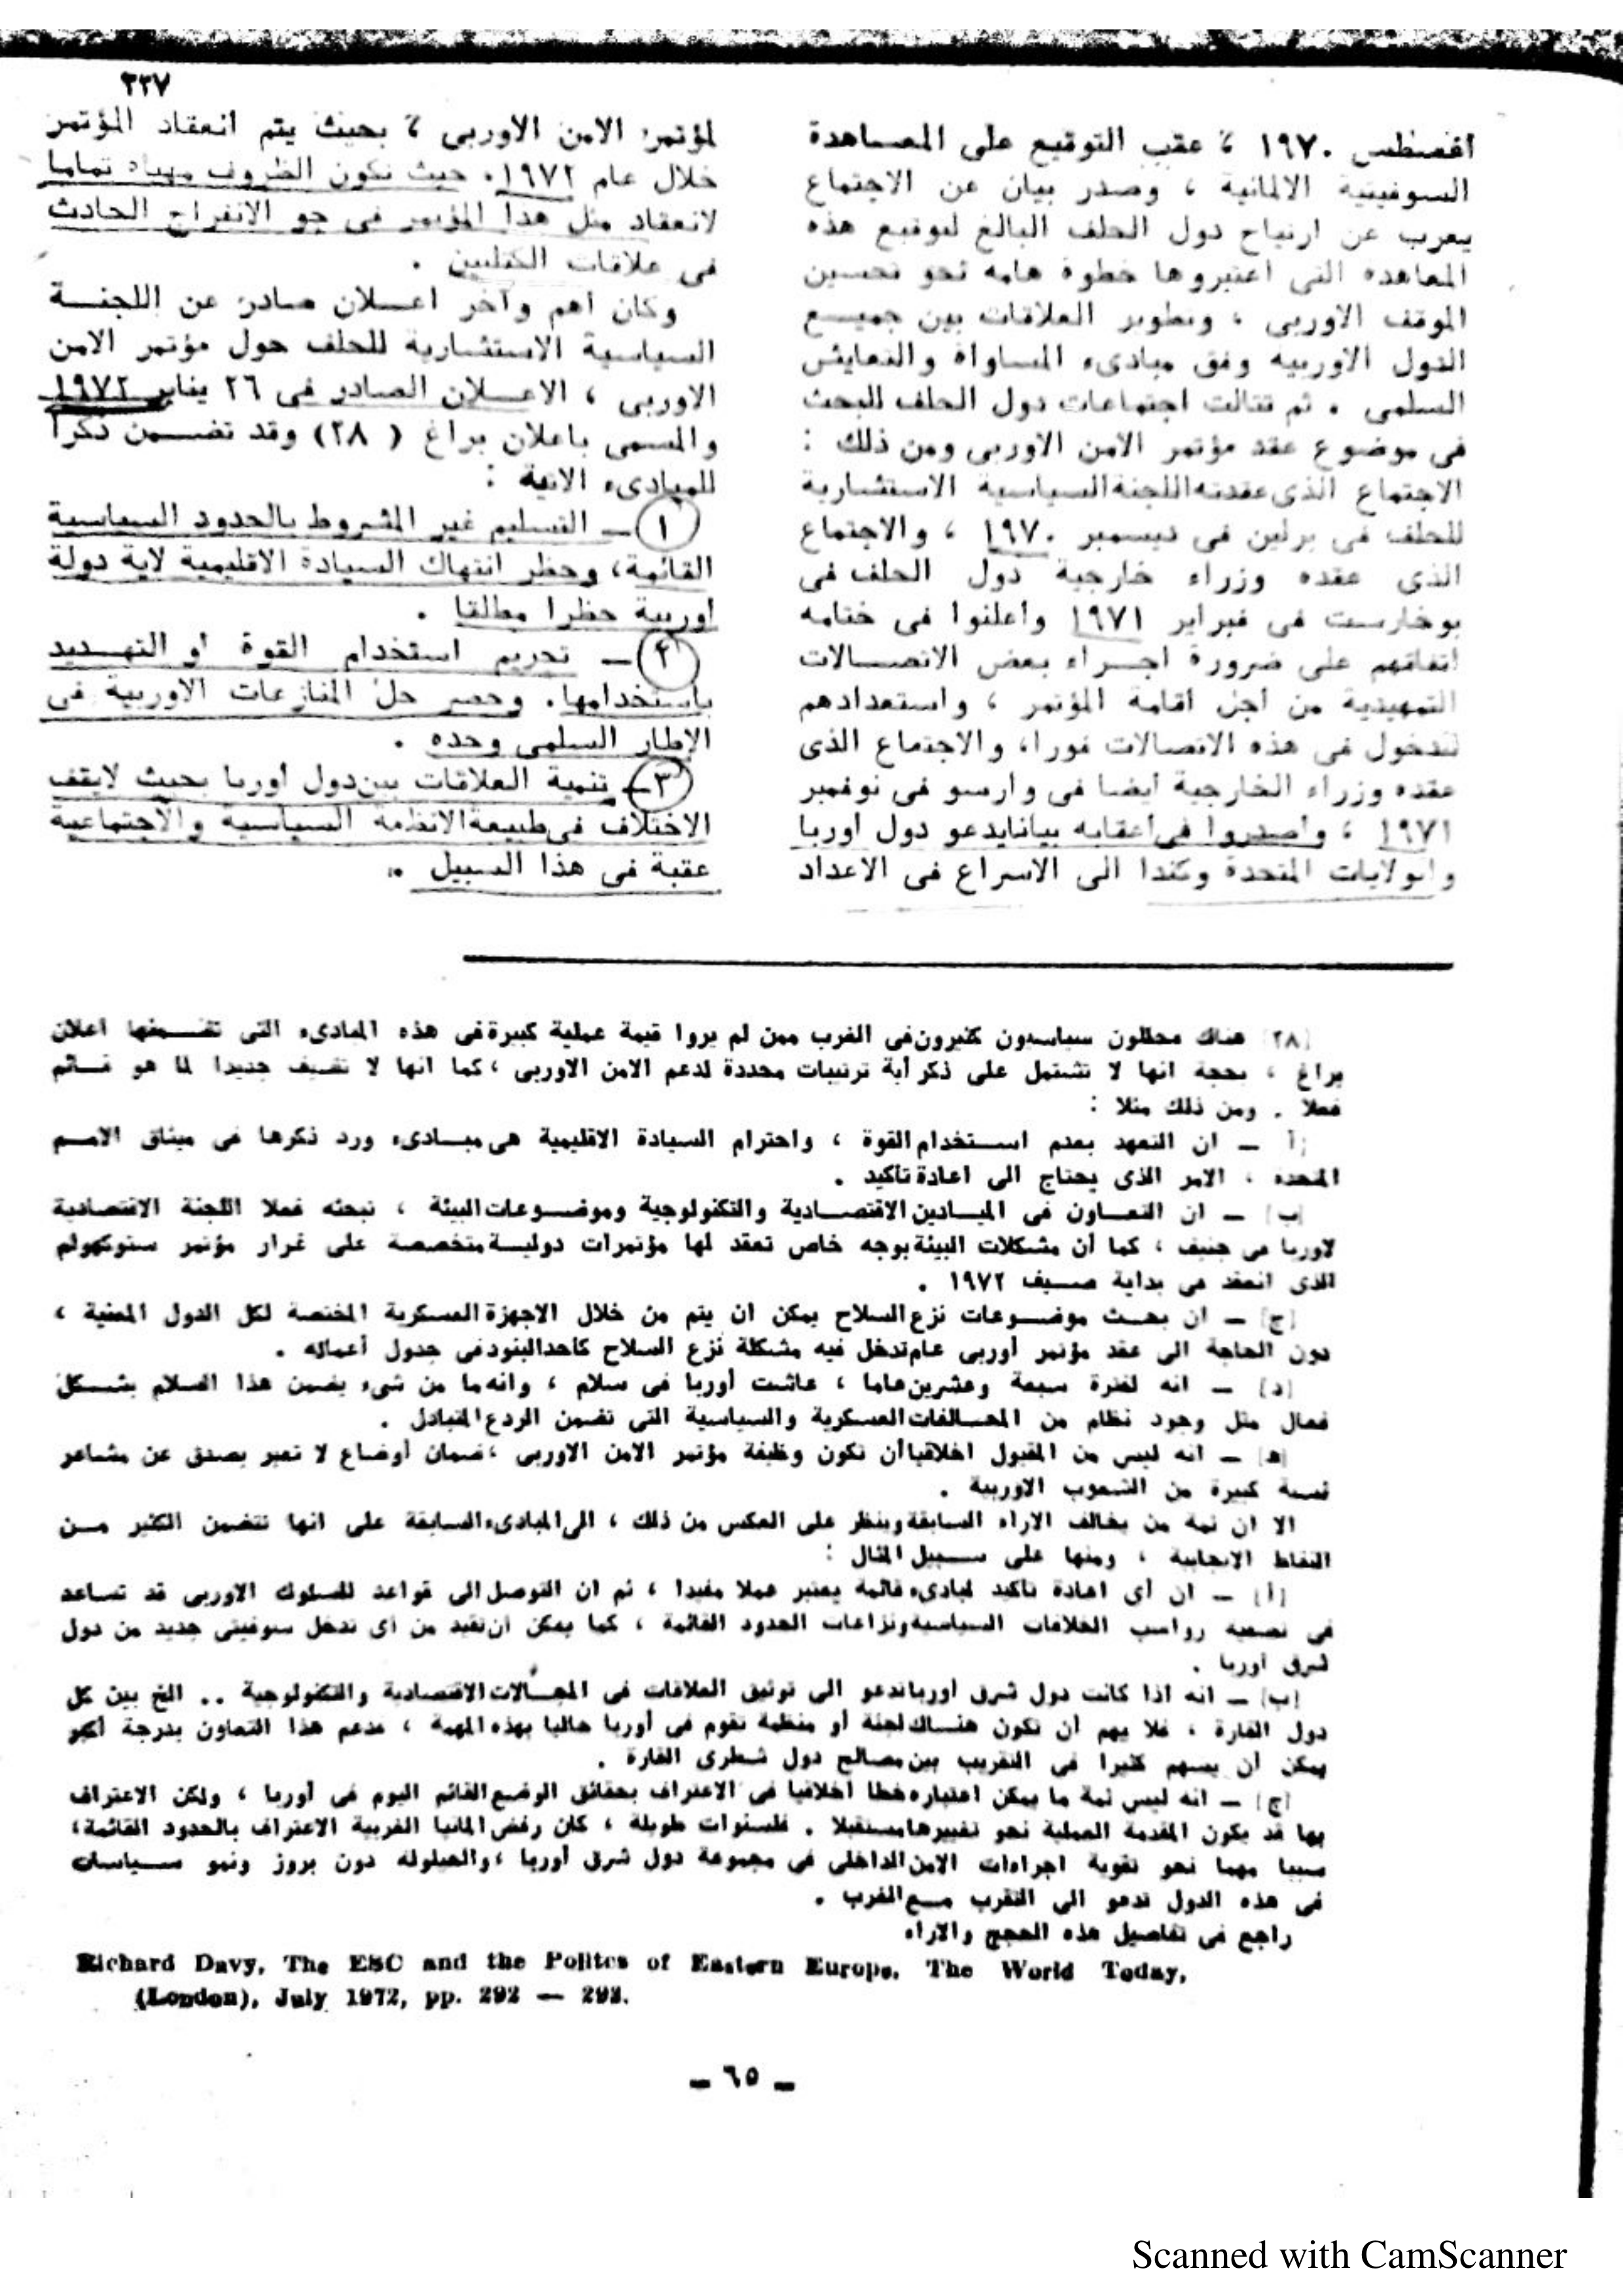 ٣٣٧
أغسطس ١٩٧٠ ، عقب التوقيع على المعاهدة
السوفيتية الالمانية ، وصدر بيان عن الاجتماع
يعرب عن ارتياح دول الحلف البالغ لتوقيع هذه
المعاهدة التى اعتبروها خطوة هامة نحو تحسين
الموقف الاوربى ، وتطوير العلاقات بين جميع
الدول الاوربية وفق مبادىء المساواة والتعايش
السلمى . ثم تتالت اجتماعات دول الحلف للبحث
فى موضوع عقد مؤتمر الامن الاوربى ومن ذلك :
الاجتماع الذى عقدته اللجنة السياسية الاستشارية
للحلف فى برلين فى ديسمبر ١٩٧٠ ، والاجتماع
الذى عقده وزراء خارجية دول الحلف فى
بوخارست فى فبراير ١٩٧١ واعلنوا فى ختامه
اتفاقهم على ضرورة اجراء بعض الاتصالات
التمهيدية من اجل اقامة المؤتمر ، واستعدادهم
للدخول فى هذه الاتصالات فورا، والاجتماع الذى
عقده وزراء الخارجية ايضا فى وارسو فى نوفمبر
١٩٧١ ، واصدروا فى اعقابه بيانا يدعو دول اوربا
والولايات المتحدة وكندا الى الاسراع فى الاعداد
لمؤتمر الامن الاوربى ، بحيث يتم انعقاد المؤتمر
خلال عام ١٩٧٢. حيث تكون الظروف مهيأة تماما
لانعقاد مثل هذا المؤتمر فى جو الانفراج الحادث
فى علاقات الكتلتين .
وكان اهم وآخر اعلان صادر عن اللجنة
السياسية الاستشارية للحلف حول مؤتمر الامن
الاوربى ، الاعلان الصادر فى ٢٦ يناير ١٩٧٢
والمسمى باعلان براغ ( ٢٨) وقد تضمن ذكرا
للمبادىء الاتية :
١ – التسليم غير المشروط بالحدود السياسية
القائمة، وحظر انتهاك السيادة الاقليمية لاية دولة
اوربية حظرا مطلقا .
٢ – تحريم استخدام القوة او التهديد
باستخدامها. وحصر حل المنازعات الاوربية فى
الإطار السلمى وحده .
٣ – تنمية العلاقات بين دول أوربا بحيث لايقف
الاختلاف فى طبيعة الانظمة السياسية والاجتماعية
عقبة فى هذا السبيل ..
(٢٨) هناك محللون سياسيون كثيرون فى الغرب ممن لم يروا قيمة عملية كبيرة فى هذه المبادىء التى تضمنها اعلان
براغ ، بحجة انها لا تشتمل على ذكر أية ترتيبات محددة لدعم الامن الاوربى ، كما انها لا تضيف جديدا لما هو قائم
فعلا . ومن ذلك مثلا :
(أ – ان التعهد بعدم استخدام القوة ، واحترام السيادة الاقليمية هى مبادىء ورد ذكرها فى ميثاق الامم
المتحدة ، الامر الذى يحتاج الى اعادة تأكيد .
(ب) – ان التعاون فى الميادين الاقتصادية والتكنولوجية وموضوعات البيئة ، تبحثه فعلا اللجنة الاقتصادية
لاوربا فى جنيف ، كما أن مشكلات البيئة بوجه خاص تعقد لها مؤتمرات دولية متخصصة على غرار مؤتمر ستوكهولم
الذى انعقد فى بداية صيف ١٩٧٢ .
(ج) – ان بحث موضوعات نزع السلاح يمكن ان يتم من خلال الاجهزة العسكرية المختصة لكل الدول المعنية ،
دون الحاجة الى عقد مؤتمر أوربى عام تدخل فيه مشكلة نزع السلاح كاحد البنود فى جدول أعماله .
(د) – انه لفترة سبعة وعشرين عاما ، عاشت أوربا فى سلام ، وانه ما من شىء يضمن هذا السلام بشكل
فعال مثل وجود نظام من المحالفات العسكرية والسياسية التى تضمن الردع المتبادل .
(هـ) – انه ليس من المقبول اخلاقيا أن تكون وظيفة مؤتمر الامن الاوربى ، ضمان أوضاع لا تعبر بصدق عن مشاعر
نسبة كبيرة من الشعوب الاوربية .
الا ان ثمة من يخالف الاراء السابقة وينظر على العكس من ذلك ، الى المبادىء السابقة على انها تتضمن الكثير من
النقاط الايجابية ، ومنها على سبيل المثال :
(أ) – ان أى اعادة تأكيد لمبادىء قائمة يعتبر عملا مفيدا ، ثم ان التوصل الى قواعد للسلوك الاوربى قد تساعد
فى تصفية رواسب الخلافات السياسية ونزاعات الحدود القائمة ، كما يمكن ان تقيد من أى تدخل سوفيتى جديد من دول
شرق أوربا .
(ب) – انه اذا كانت دول شرق أوربا تدعو الى توثيق العلاقات فى المجالات الاقتصادية والتكنولوجية .. الخ بين كل
دول القارة ، فلا يهم أن تكون هناك لجنة أو منظمة تقوم فى أوربا حاليا بهذه المهمة ، فدعم هذا التعاون بدرجة أكبر
يمكن أن يسهم كثيرا فى التقريب بين مصالح دول شطرى القارة .
(ج) – انه ليس ثمة ما يمكن اعتباره خطا اخلاقيا فى الاعتراف بحقائق الوضع القائم اليوم فى أوربا ، ولكن الاعتراف
بها قد يكون المقدمة العملية نحو تغييرها مستقبلا . فلسنوات طويلة ، كان رفض المانيا الغربية الاعتراف بالحدود القائمة،
سببا مهما نحو تقوية اجراءات الامن الداخلى فى مجموعة دول شرق أوربا ، والحيلولة دون بروز ونمو سياسات
فى هذه الدول تدعو الى التقرب مع الغرب .
راجع فى تفاصيل هذه الحجج والاراء
Richard Davy, The ESC and the Polites of Eastern Europe, The World Today,
(London), July 1972, pp. 292 — 293.
– ٦٥ –
Scanned with CamScanner